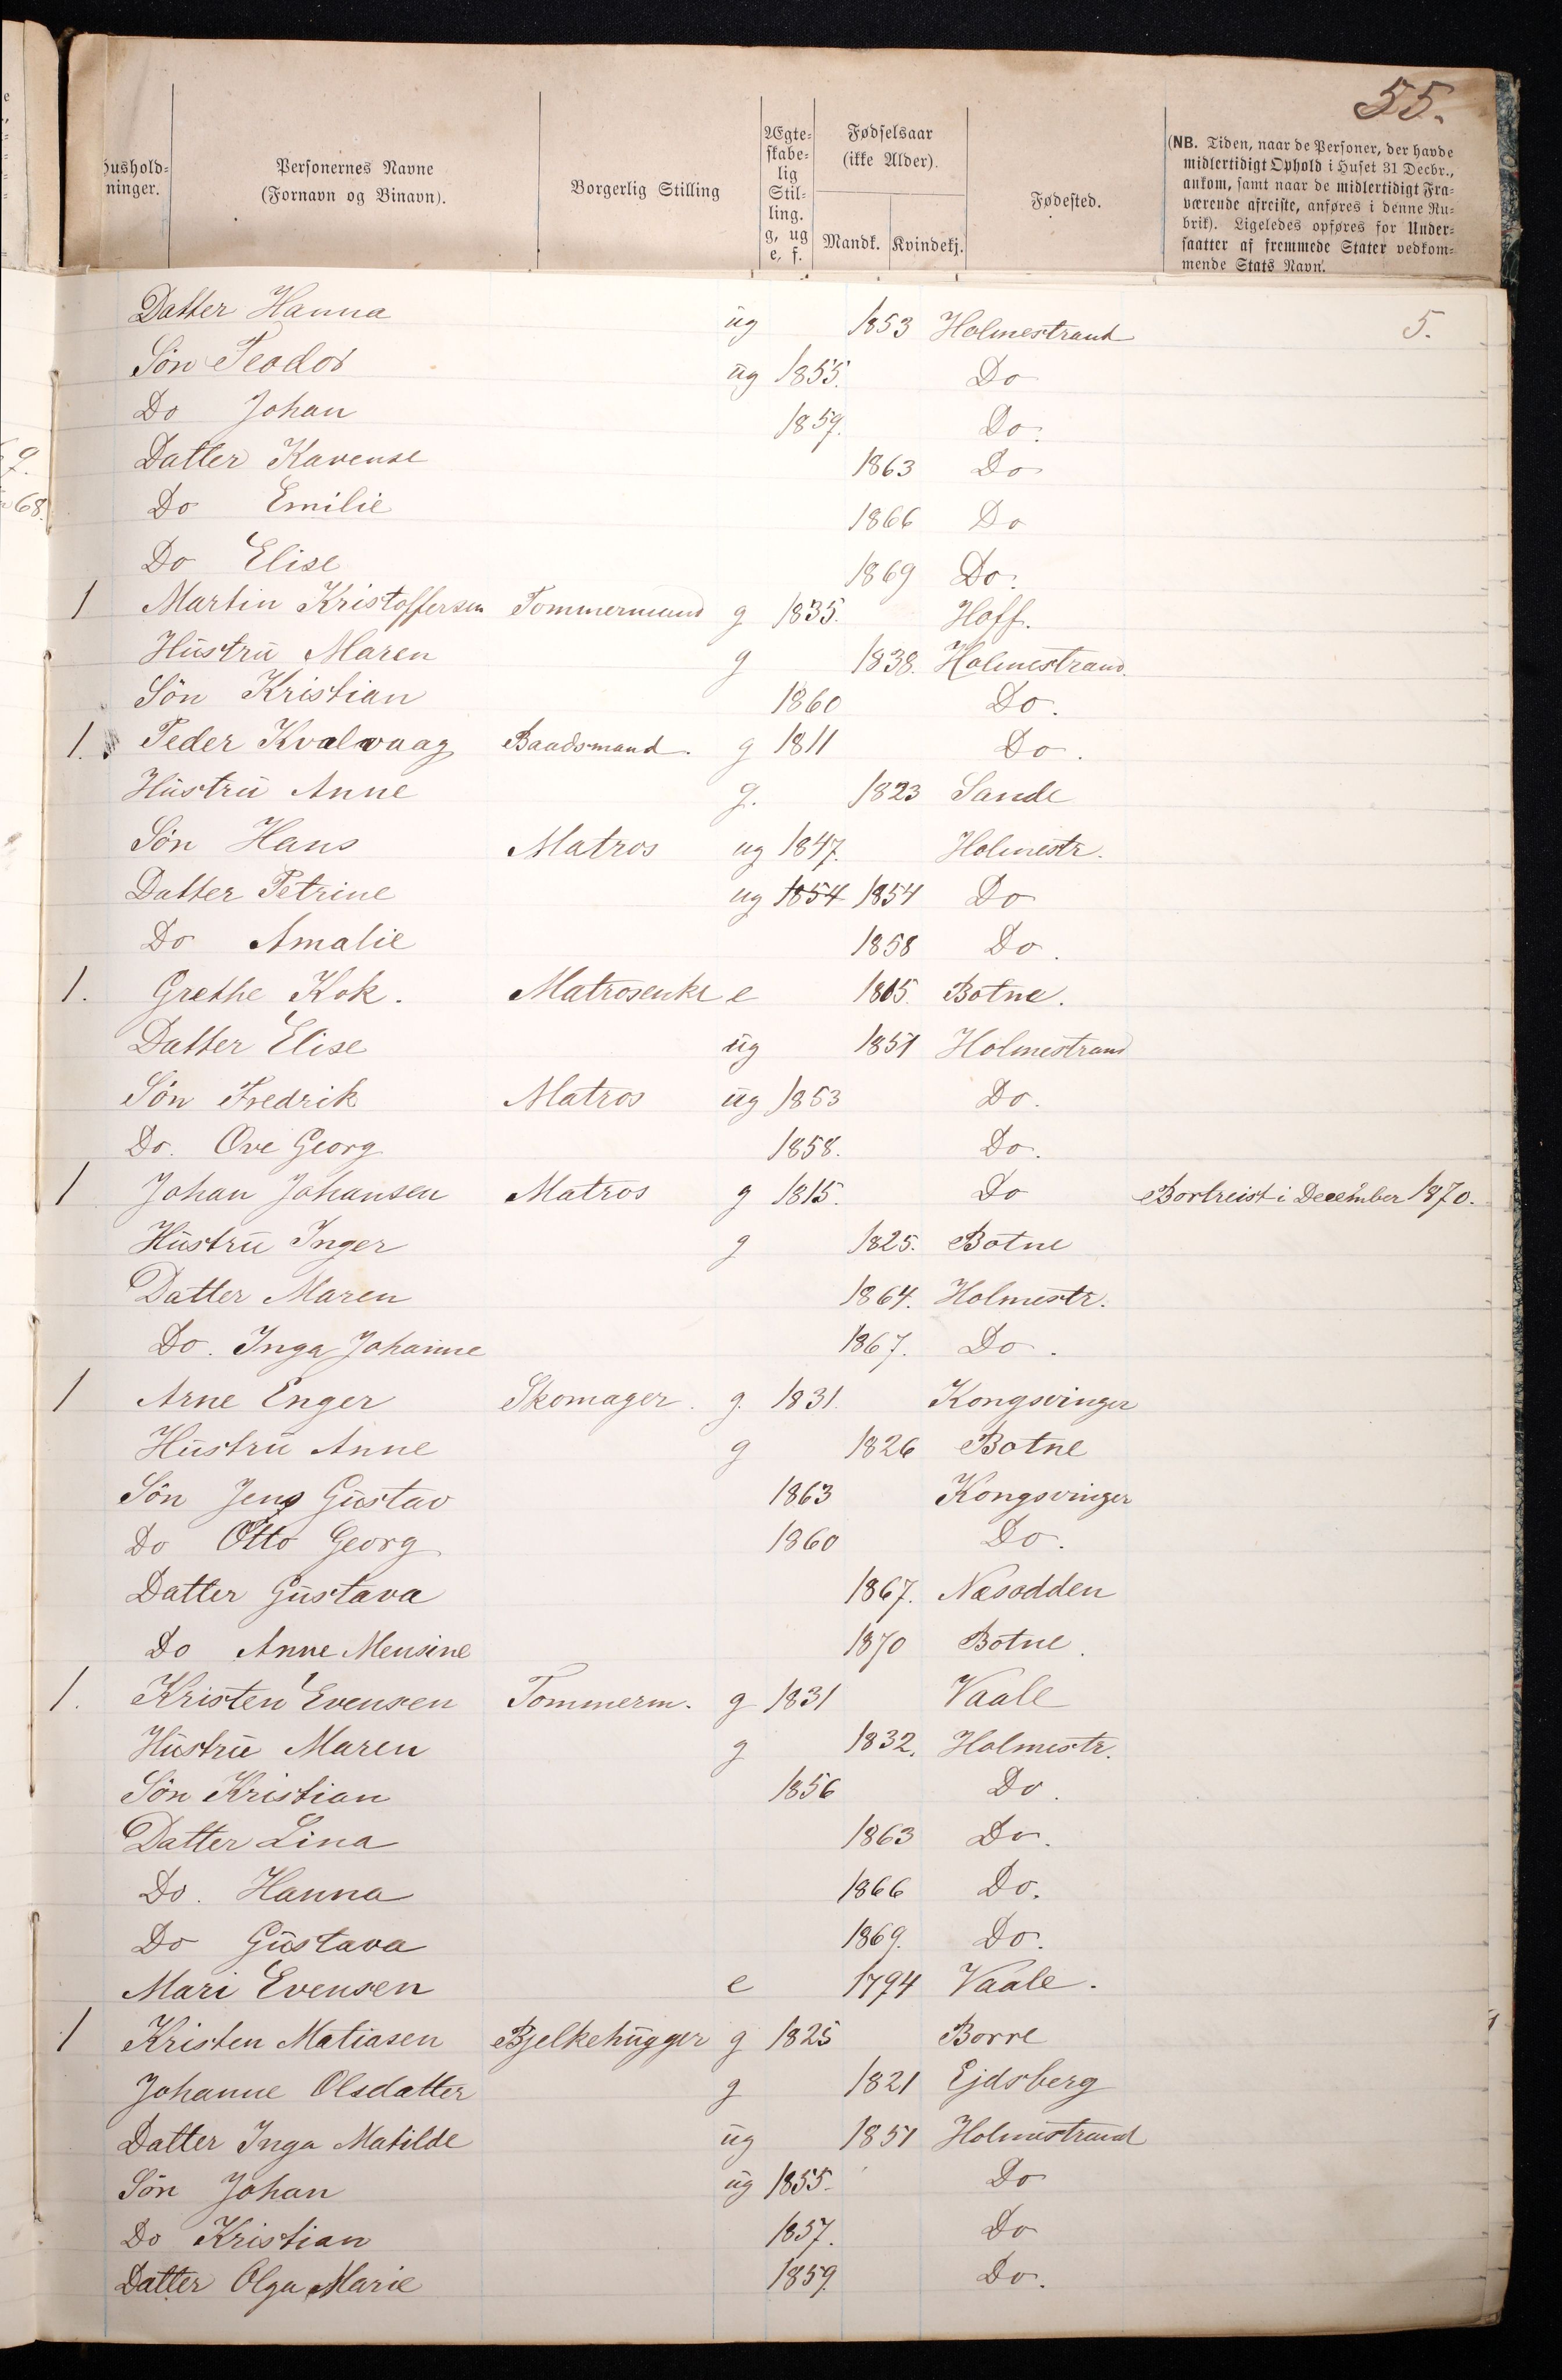 55.
Hushold-
ninger.
Personernes Navne
(Fornavn og Binavn).
Borgerlig Stilling
Ægte-
skabe-
lig
Stil-
ling.
g, ug
e, f.
Fødselsaar
(ikke Alder).
Mandk. Kvindekj.
Fødested.
(NB. Tiden, naar de Personer, der havde
midlertidigt Ophold i Huset 31 Decbr.,
ankom, samt naar de midlertidigt Fra-
værende afreiste, anføres i denne Ru-
brik). Ligeledes opføres for Under-
saatter af fremmede Stater vedkom-
mende Stats Navn.
Datter Hanna ug 1853 Holmestrand 5.
Søn Teodor ug 1855. Do
Do Johan 1859. Do.
Datter Karense 1863 Do
Do Emilie 1866 Do
Do Elise 1869 Do.
1 Martin Kristoffersen Tømmermand g 1835. Hoff.
Hustru Maren g 1838. Holmestrand.
Søn Kristian 1860 Do.
1. Peder Kvalvaag Baadsmand. g 1811 Do.
Hustru Anne g. 1823 Sande
Søn Hans Matros ug 1847. Holmestr.
Datter Petrine ug 1854 1854 Do
Do Amalie 1858 Do.
1. Grethe Kok. Matrosenke e 1805. Botne.
Datter Elise ug 1851 Holmestrand
Søn Fredrik Matros ug 1853 Do.
Do. Ove Georg 1858. Do.
1 Johan Johansen Matros g 1815. Do Bortreist i December 1870.
Hustru Inger g 1825. Botne
Datter Maren 1864. Holmestr.
Do. Inga Johanne 1867. Do.
1 Arne Enger Skomager. g. 1831. Kongsvinger
Hustru Anne g 1826 Botne
Søn Jens Gustav 1863 Kongsvinger
Do Otto Georg 1860 Do.
Datter Gustava 1867. Næsodden
Do Anne Mensine 1870 Botne.
1. Kristen Evensen Tømmerm. g 1831 Vaale
Hustru Maren g 1832. Holmestr.
Søn Kristian 1856 Do.
Datter Lina 1863 Do.
Do. Hanna 1866 Do.
Do Gustava 1869. Do.
Mari Evensen e 1794 Vaale.
1 Kristen Matiasen Bjelkehugger g 1825 Borre
Johanne Olsdatter g 1821 Ejdsberg
Datter Inga Matilde ug 1851 Holmestrand
Søn Johan ug 1855. Do
Do Kristian 1857. Do
Datter Olga Marie 1859. Do.